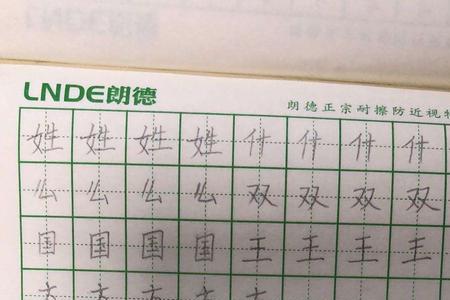 LNDE朗德
朗德正宗耐擦防近视
姓姓姓姓付付付付
么么么么双双双双
国国国国王王王王